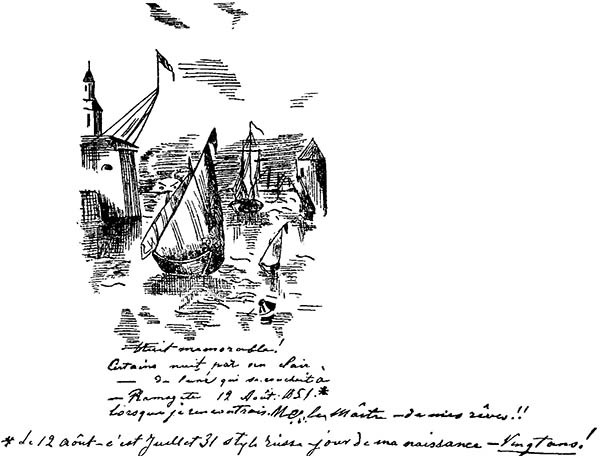 Nuit memorable!
Certaine nuit par un clair
— de lune qui se couchait a
— Ramsgate 12 Août. 1851.*
lorsque je rencontrais M∴ le Maître — de mes rêves!!
* Le 12 août — c'est Juillet 31 style russe — jour de ma naissance — Vingt ans!